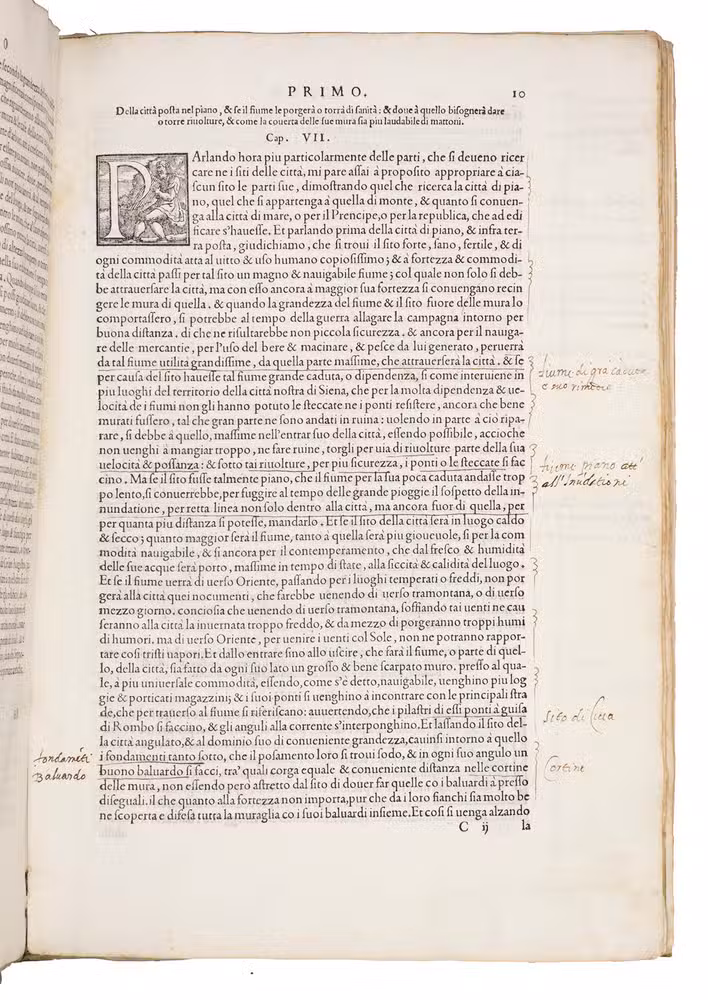 PRIMO.
10
Della città posta nel piano, & se il fiume le porgerà o torrà di sanità: & doue à quello bisognerà dare
o torre riuolture, & come la couerta delle sue mura sia piu laudabile di mattoni.
Cap. VII.
PArlando hora piu particolarmente delle parti, che si deueno ricer
care ne i siti delle città, mi pare assai à proposito appropriare à cia-
scun sito le parti sue, dimostrando quel che ricerca la città di pia-
no, quel che si appartenga à quella di monte, & quanto si conuen-
ga alla città di mare, o per il Prencipe, o per la republica, che ad edi
ficare s'hauesse. Et parlando prima della città di piano, & infra ter-
ra posta, giudichiamo, che si troui il sito forte, sano, fertile, & di
ogni commodità atta al uitto & uso humano copiosissimo; & à fortezza & commodi-
tà della città passi per tal sito un magno & nauigabile fiume; col quale non solo si deb-
be attrauersare la città, ma con esso ancora à maggior sua fortezza si conuengano recin
gere le mura di quella. & quando la grandezza del fiume & il sito fuore delle mura lo
comportassero, si potrebbe al tempo della guerra allagare la campagna intorno per
buona distanza. di che ne risultarebbe non piccola sicurezza. & ancora per il nauiga-
re delle mercantie, per l'uso del bere & macinare, & pesce da lui generato, peruerrà
da tal fiume utilità grandissime, da quella parte massime, che attrauerserà la città. & se
per causa del sito hauesse tal fiume grande caduta, o dipendenza, si come interuiene in
piu luoghi del territorio della città nostra di Siena, che per la molta dipendenza & ue-
locità de i fiumi non gli hanno potuto le steccate ne i ponti resistere, ancora che bene
murati fussero, tal che gran parte ne sono andati in ruina: uolendo in parte à ciò ripa-
rare, si debbe à quello, massime nell'entrar suo della città, essendo possibile, accioche
non uenghi à mangiar troppo, ne fare ruine, torgli per uia di riuolture parte della sua
uelocità & possanza: & sotto tai riuolture, per piu sicurezza, i ponti o le steccate si fac
cino. Ma se il sito fusse talmente piano, che il fiume per la sua poca caduta andasse trop
po lento, si conuerrebbe, per fuggire al tempo delle grande pioggie il sospetto della in-
nundatione, per retta linea non solo dentro alla città, ma ancora fuor di quella, per
per quanta piu distanza si potesse, mandarlo. Et se il sito della città serà in luogo caldo
& secco; quanto maggior serà il fiume, tanto à quella serà piu gioueuole, sì per la com
modità nauigabile, & sì ancora per il contemperamento, che dal fresco & humidità
delle sue acque serà porto, massime in tempo di state, alla siccità & calidità del luogo.
Et se il fiume uerrà di uerso Oriente, passando per i luoghi temperati o freddi, non por
gerà alla città quei nocumenti, che farebbe uenendo di uerso tramontana, o di uerso
mezzo giorno. conciosia che uenendo di uerso tramontana, soffiando tai uenti ne cau
seranno alla città la inuernata troppo freddo, & da mezzo dì porgeranno troppi humi
di humori. ma di uerso Oriente, per uenire i uenti col Sole, non ne potranno rappor-
tare così tristi uapori. Et dallo entrare sino allo uscire, che farà il fiume, o parte di quel-
lo, della città, sia fatto da ogni suo lato un grosso & bene scarpato muro. presso al qua-
le, à piu uniuersale commodità, essendo, come s'è detto, nauigabile, uenghino piu log
gie & porticati magazzini; & i suoi ponti si uenghino à incontrare con le principali stra
de, che per trauerso al fiume si riferiscano: auuertendo, che i pilastri di essi ponti à guisa
di Rombo si faccino, & gli anguli alla corrente s'interponghino. Et lassando il sito del-
la città angulato, & al dominio suo di conueniente grandezza, cauinsi intorno à quello
i fondamenti tanto sotto, che il posamento loro si troui sodo, & in ogni suo angulo un
buono baluardo si facci, tra' quali corga equale & conueniente distanza nelle cortine
delle mura, non essendo pero astretto dal sito di douer far quelle co i baluardi à presso
diseguali. il che quanto alla fortezza non importa, pur che da i lor fianchi sia molto be
ne scoperta e difesa tutta la muraglia co i suoi baluardi insieme. Et così si uenga alzando
C ij
la
fiume di grã caduta
e suo rimedio
fiume piano att'
all'Inũdationi
Sito di Citta
Cortine
fondamẽti
Baluardo